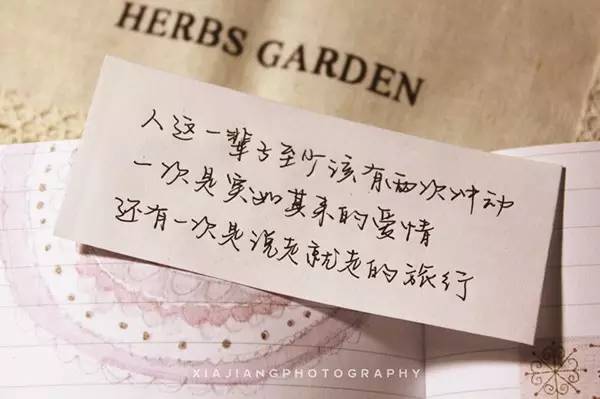 HERBS GARDEN
人这一辈子至少该有两次冲动
一次是突如其来的爱情
还有一次是说走就走的旅行
XIAJIANGPHOTOGRAPHY